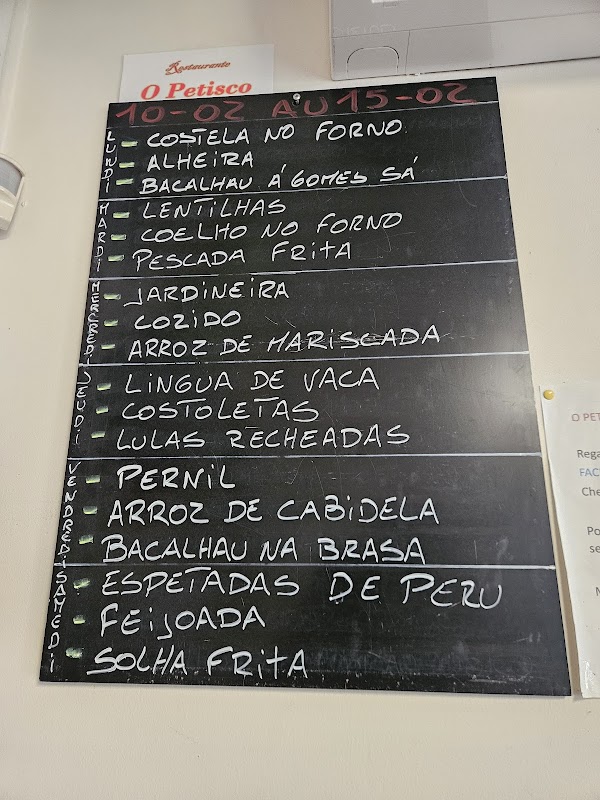 Restaurante
O Petisco
10-02 AU 15-02
LUNDI
- COSTELA NO FORNO
- ALHEIRA
- BACALHAU Á GOMES SÁ
MARDI
- LENTILHAS
- COELHO NO FORNO
- PESCADA FRITA
MERCREDI
- JARDINEIRA
- COZIDO
- ARROZ DE MARISCADA
JEUDI
- LINGUA DE VACA
- COSTOLETAS
- LULAS RECHEADAS
VENDREDI
- PERNIL
- ARROZ DE CABIDELA
- BACALHAU NA BRASA
SAMEDI
- ESPETADAS DE PERU
- FEIJOADA
- SOLHA FRITA
O PET
Rega
FAC
Che
Po
se